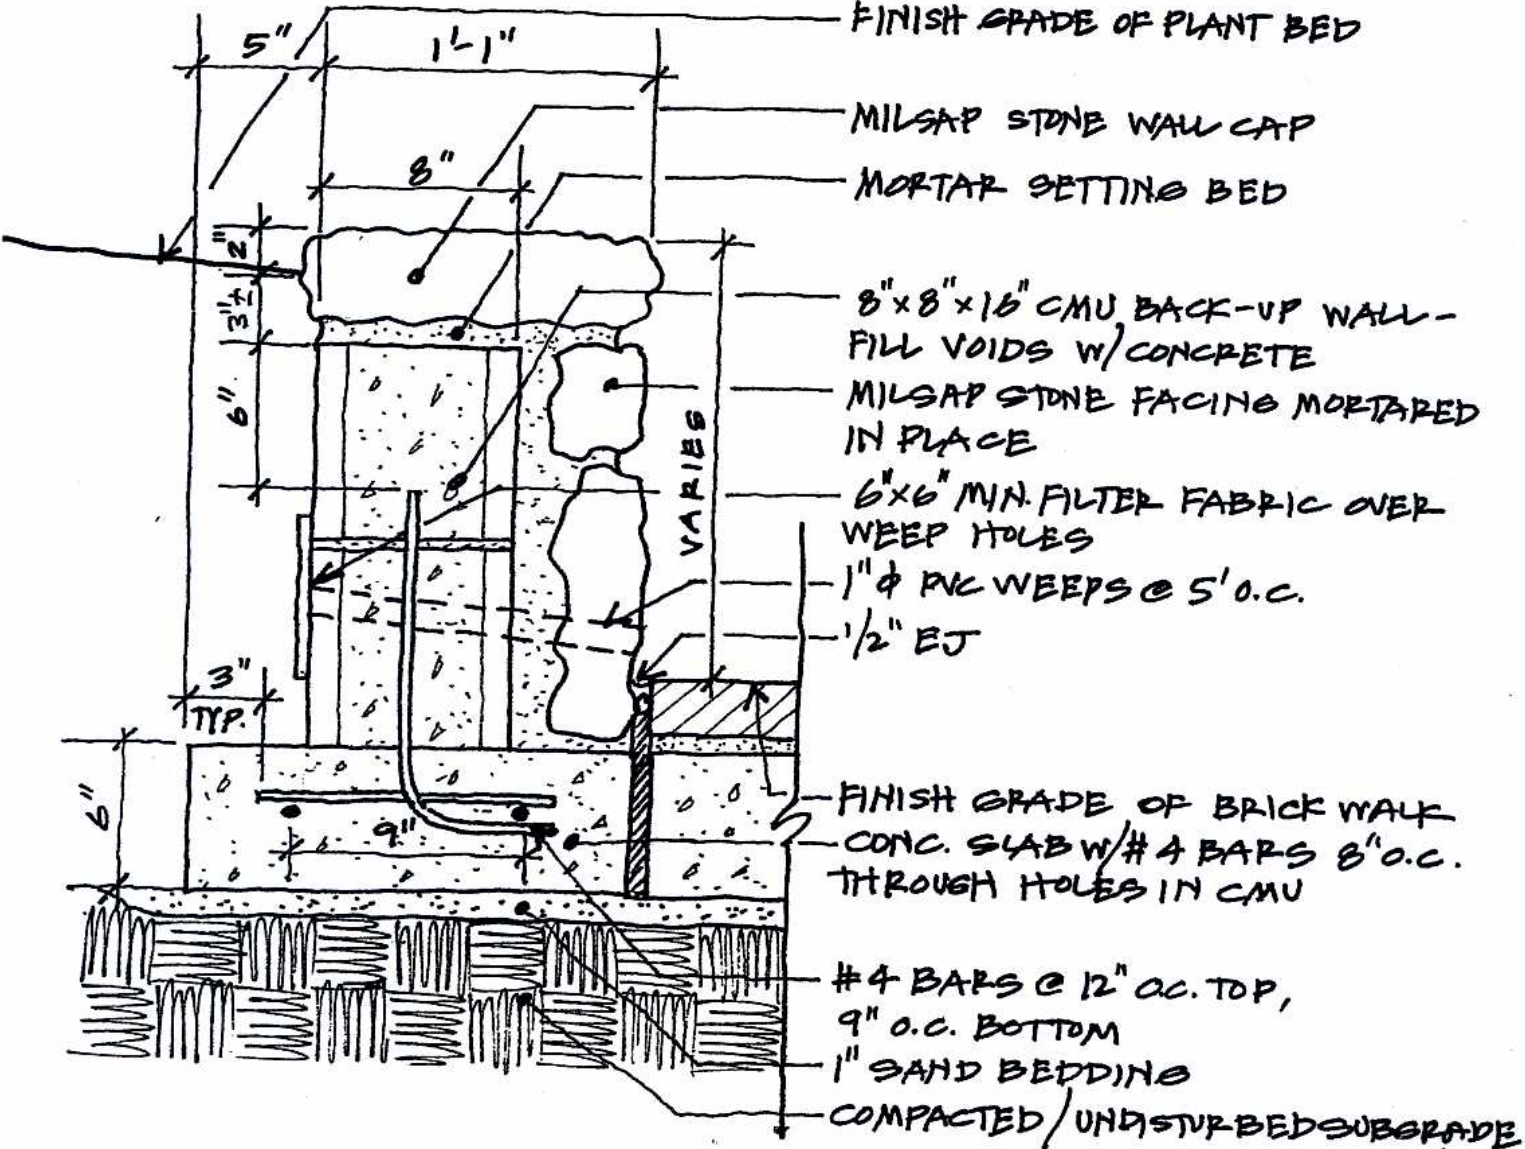 FINISH GRADE OF PLANT BED
5"
1'-1"
MILSAP STONE WALL CAP
8"
MORTAR SETTING BED
2"
3"±
8"x8"x16" CMU BACK-UP WALL-
FILL VOIDS W/CONCRETE
6"
MILSAP STONE FACING MORTARED
IN PLACE
VARIES
6"x6" MIN. FILTER FABRIC OVER
WEEP HOLES
1"ϕ PVC WEEPS @ 5' O.C.
1/2" EJ
3"
TYP.
6"
9"
FINISH GRADE OF BRICK WALK
CONC. SLAB W/#4 BARS 8" O.C.
THROUGH HOLES IN CMU
#4 BARS @ 12" O.C. TOP,
9" O.C. BOTTOM
1" SAND BEDDING
COMPACTED/UNDISTURBED SUBGRADE